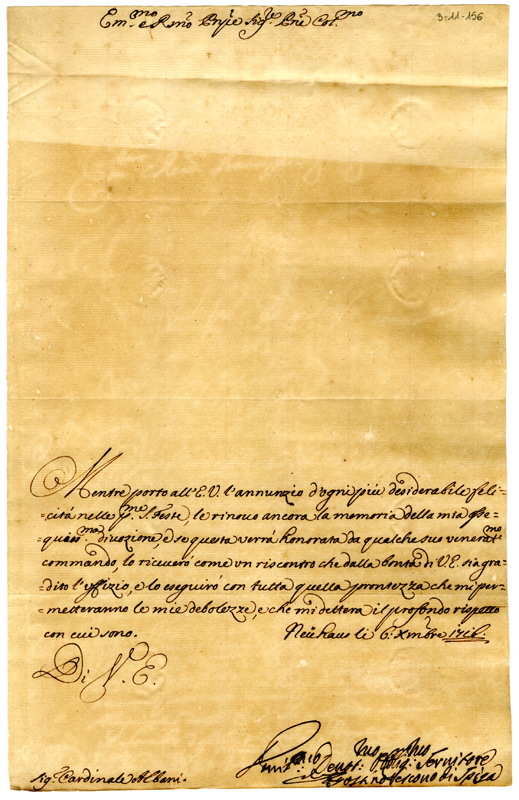 3-11-156
Em.mo e Rmo Sig.re Pne Col.mo
Mentre porto all'E.V. l'annunzio d'ogni più desiderabile feli-
=cità nelle p.me S. Feste, le rinovo ancora la memoria della mia osse-
=quios.ma divozione, e se questa verrà honorata da qualche suo venerat.mo
commando, lo riceverò come un riscontro che dalla bontà di V.E. sia gra-
dito l'uffizio, e lo eseguirò con tutta quella prontezza che mi per-
=metteranno le mie debolezze, e che mi detterà il profondo rispetto
con cui sono. Neuhaus li 6: Xmbre 1716.
Di V. E.
Sig.r Cardinale Albani.
Devot: Oblig: Servitore
Vescovo di Spiga